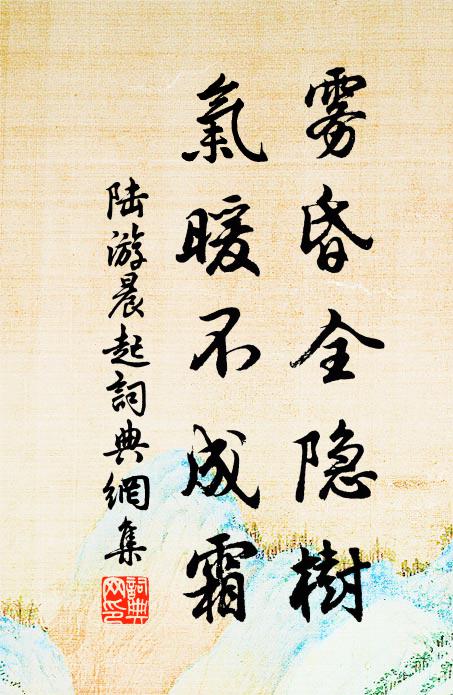 雾昏全隐樹
氣暖不成霜
陆游晨起詞典網集
詞典网印